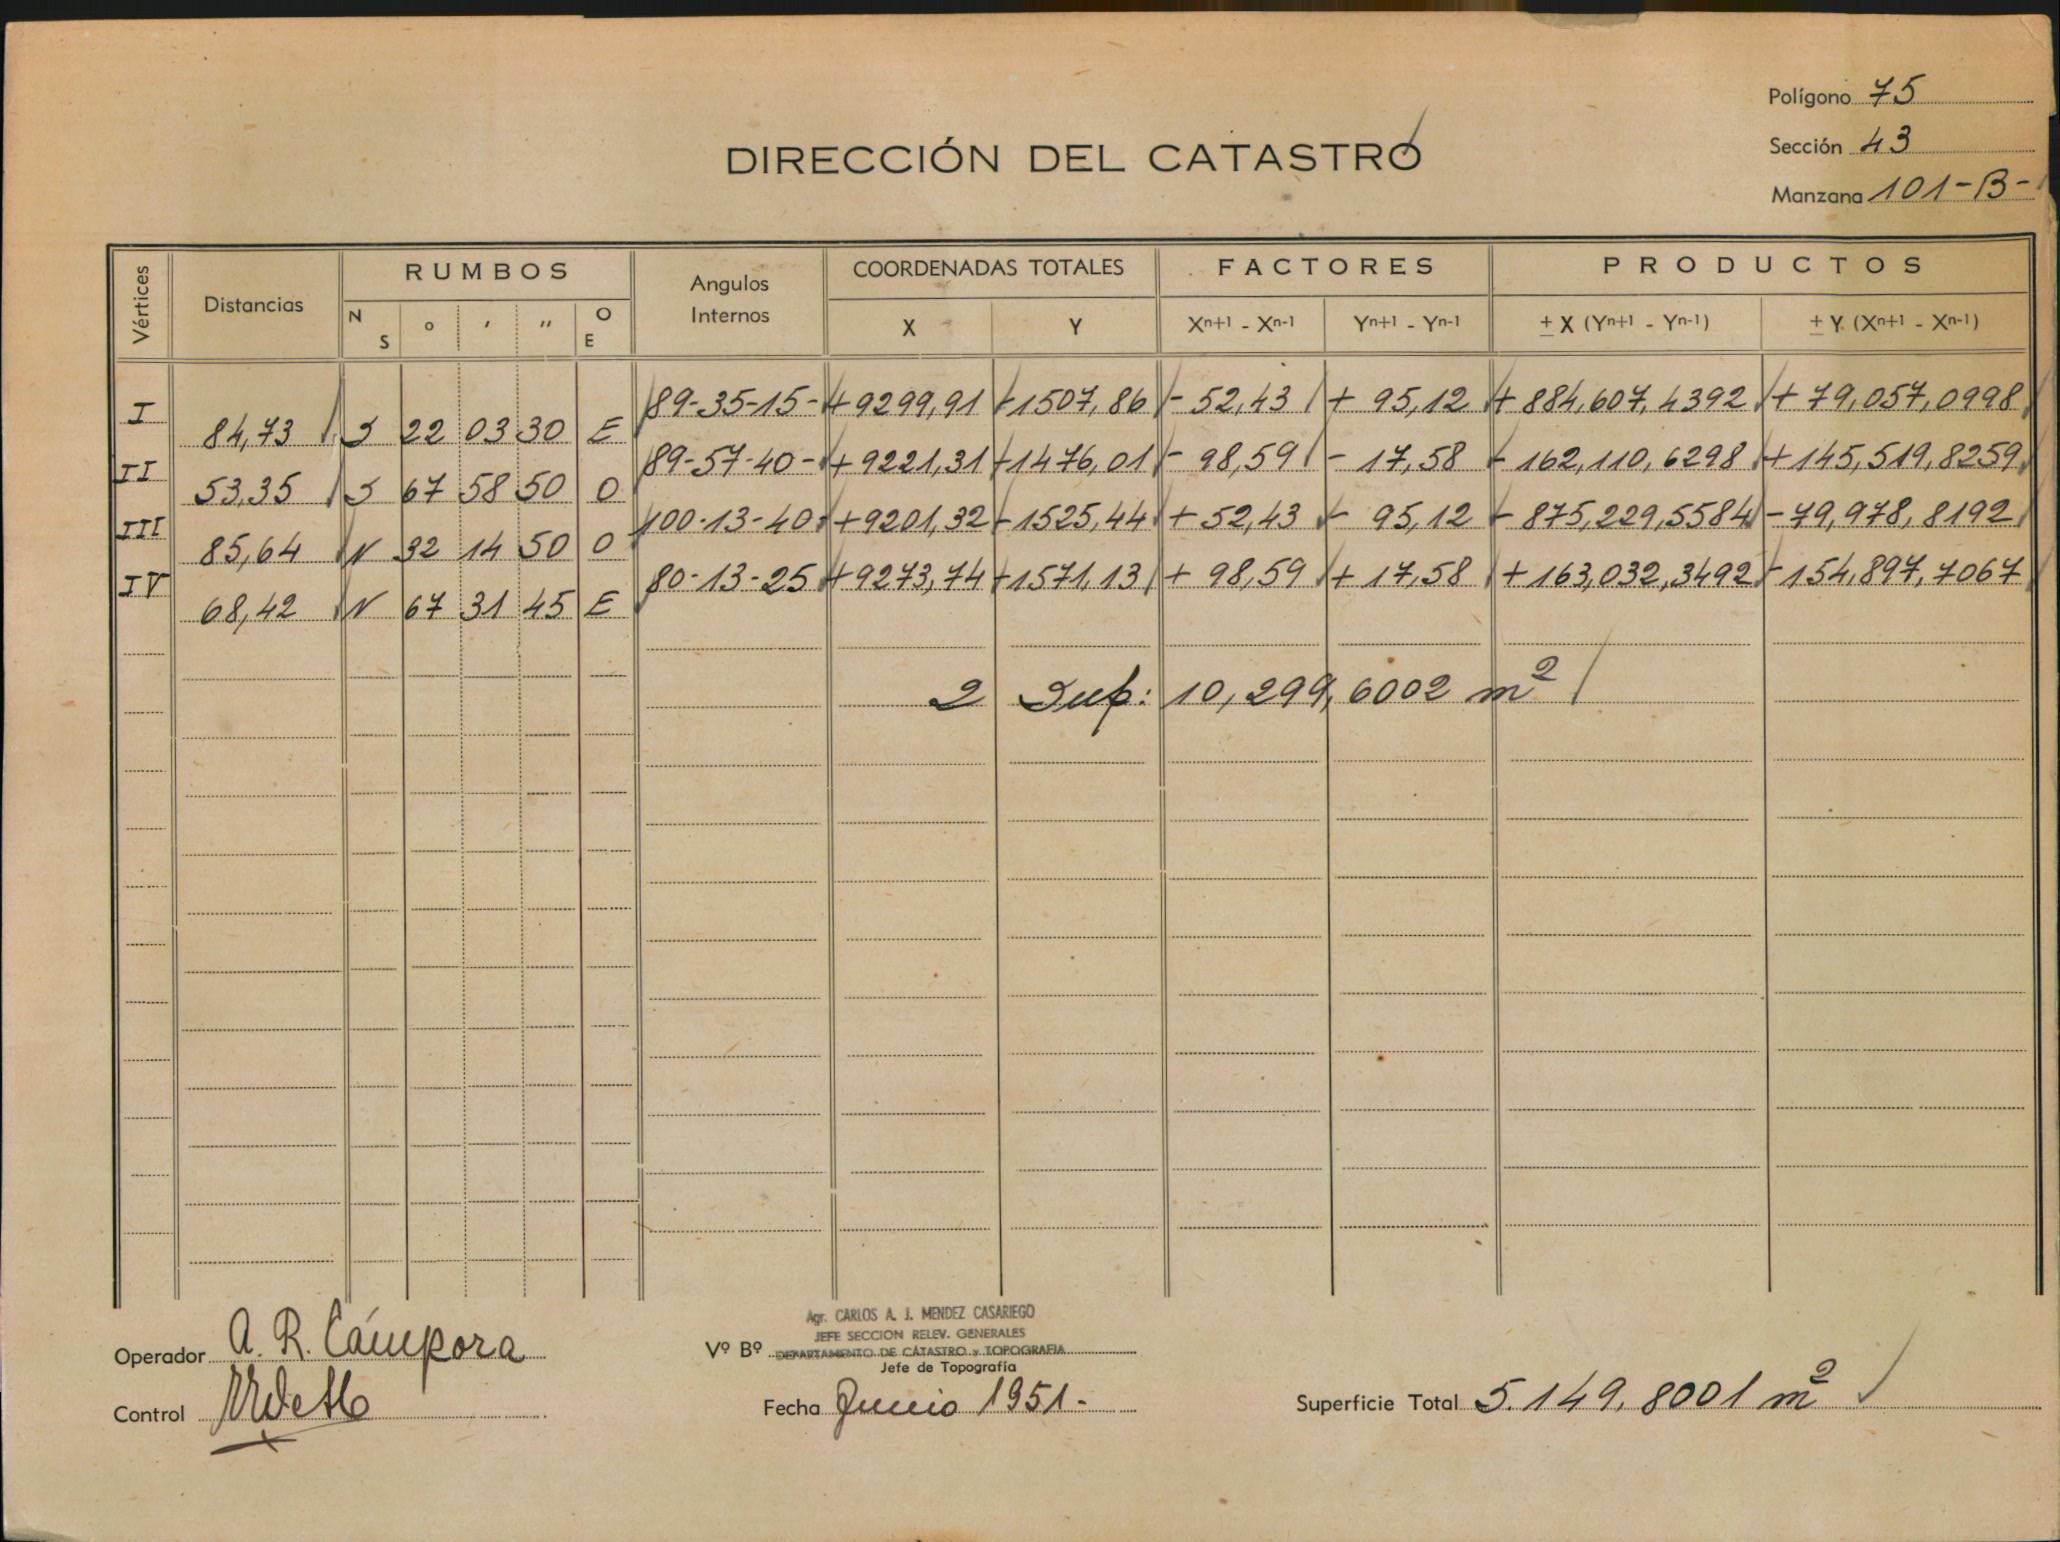 Polígono 75
DIRECCIÓN DEL CATASTRO
Sección 43
Manzana 101-B-
Vértices Distancias RUMBOS Angulos Internos COORDENADAS TOTALES FACTORES PRODUCTOS
N S o ' '' O E X Y Xn+1 - Xn-1 Yn+1 - Yn-1 ± X (Yn+1 - Yn-1) ± Y (Xn+1 - Xn-1)
I 89-35-15- +9299,91 -1507,86 - 52,43 + 95,12 + 884,607,4392 + 79,057,0998
84,73 S 22 03 30 E
II 89-57-40- +9221,31 -1476,01 - 98,59 - 17,58 - 162,110,6298 +145,519,8259
53,35 S 67 58 50 O
III 100-13-40- +9201,32 -1525,44 + 52,43 - 95,12 - 875,229,5584 -79,978,8192
85,64 N 32 14 50 O
IV 80-13-25 +9273,74 -1571,13 + 98,59 + 17,58 +163,032,3492 -154,897,7067
68,42 N 67 31 45 E
2 Sup: 10,299,6002 m2
Agr. CARLOS A. J. MENDEZ CASARIEGO
JEFE SECCION RELEV. GENERALES
Operador A. R. Cámpora Vº Bº DEPARTAMENTO DE CATASTRO y TOPOGRAFIA
Jefe de Topografía
Control Fecha Junio 1951.- Superficie Total 5.149,8001 m2